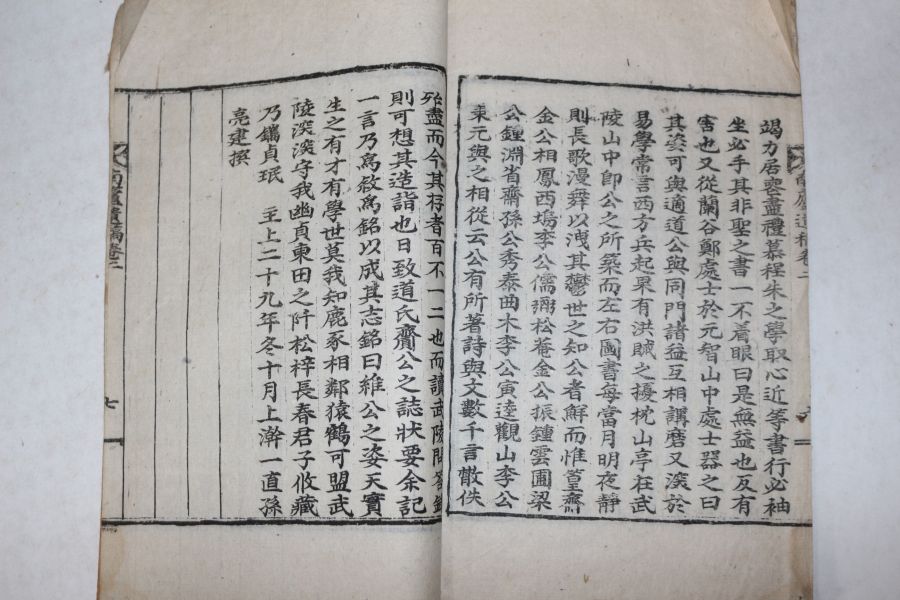 竭力居喪盡禮慕程朱之學取心近等書行必袖
坐必手其非聖之書一不着眼曰是無益也反有
害也又從蘭谷鄭處士於元智山中處士器之曰
其姿可與適道公與同門諸益互相講磨又深於
易學常言西方兵起果有洪賊之擾枕山亭在武
陵山中卽公之所築而左右圖書每當月明夜靜
則長歌漫舞以洩其鬱世之知公者鮮而惟篁齋
金公相鳳西塢李公儒弼松菴金公振鍾雲圃梁
公鍾淵省齋孫公秀泰曲木李公寅逵觀山李公
東元與之相從云公有所著詩與文數千言散佚
殆盡而今其存者百不一二也而讀武陵問答錄
則可想其造詣也日致道氏齎公之誌狀要余記
一言乃爲敍爲銘以成其志銘曰維公之姿天實
生之有才有學世莫我知鹿豕相鄰猿鶴可盟武
陵深深守我幽貞東田之阡松梓長春君子攸藏
乃鐫貞珉 主上二十九年冬十月上澣一直孫
亮建撰
南 遺稿卷二
七